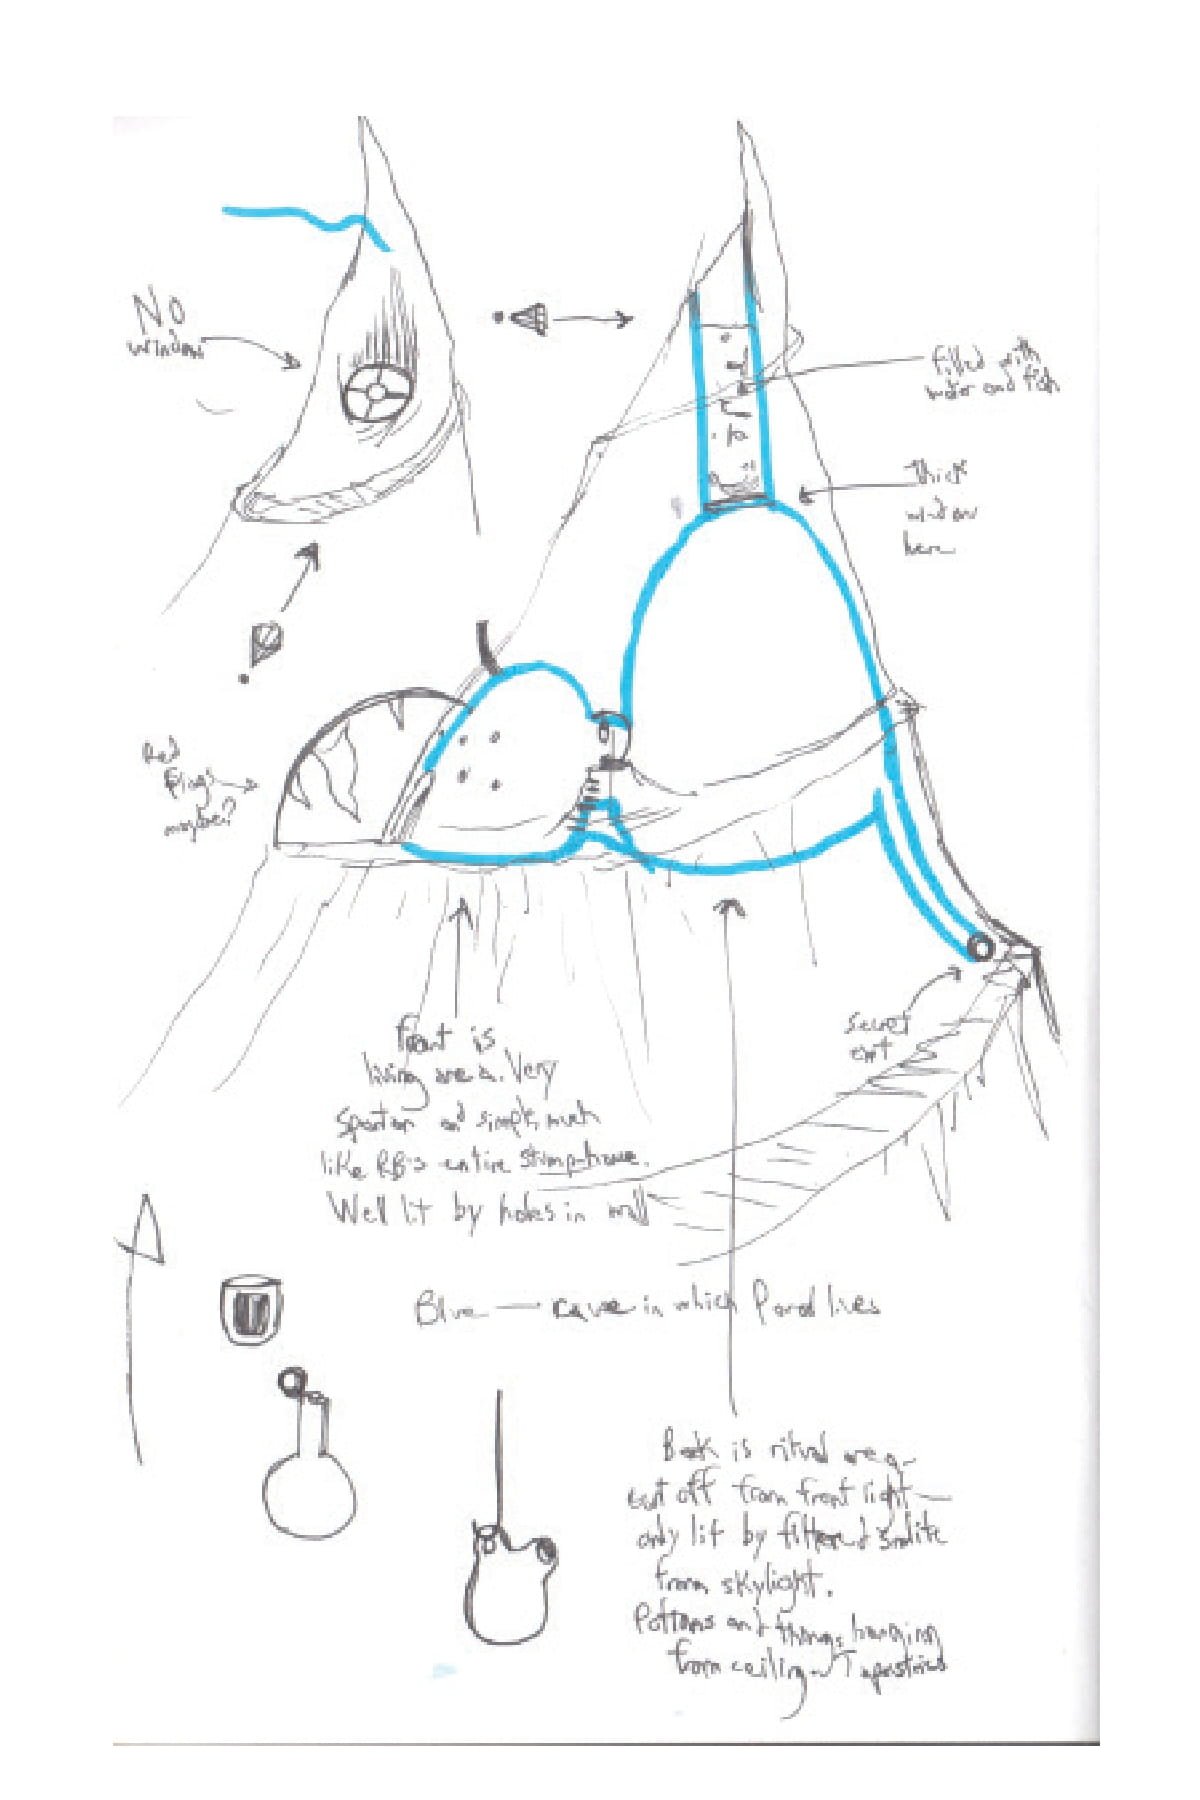 No
window
filled with
water and fish
thick
window
here
Red
flags
maybe?
secret
exit
Front is
living area. Very
spartan and simple, much
like RB's entire stump-house.
Well lit by holes in wall
Blue — cave in which Parod lives
Back is ritual area-
cut off from front light—
only lit by filtered
from skylight.
Potions and things hanging
from ceiling Tapestries